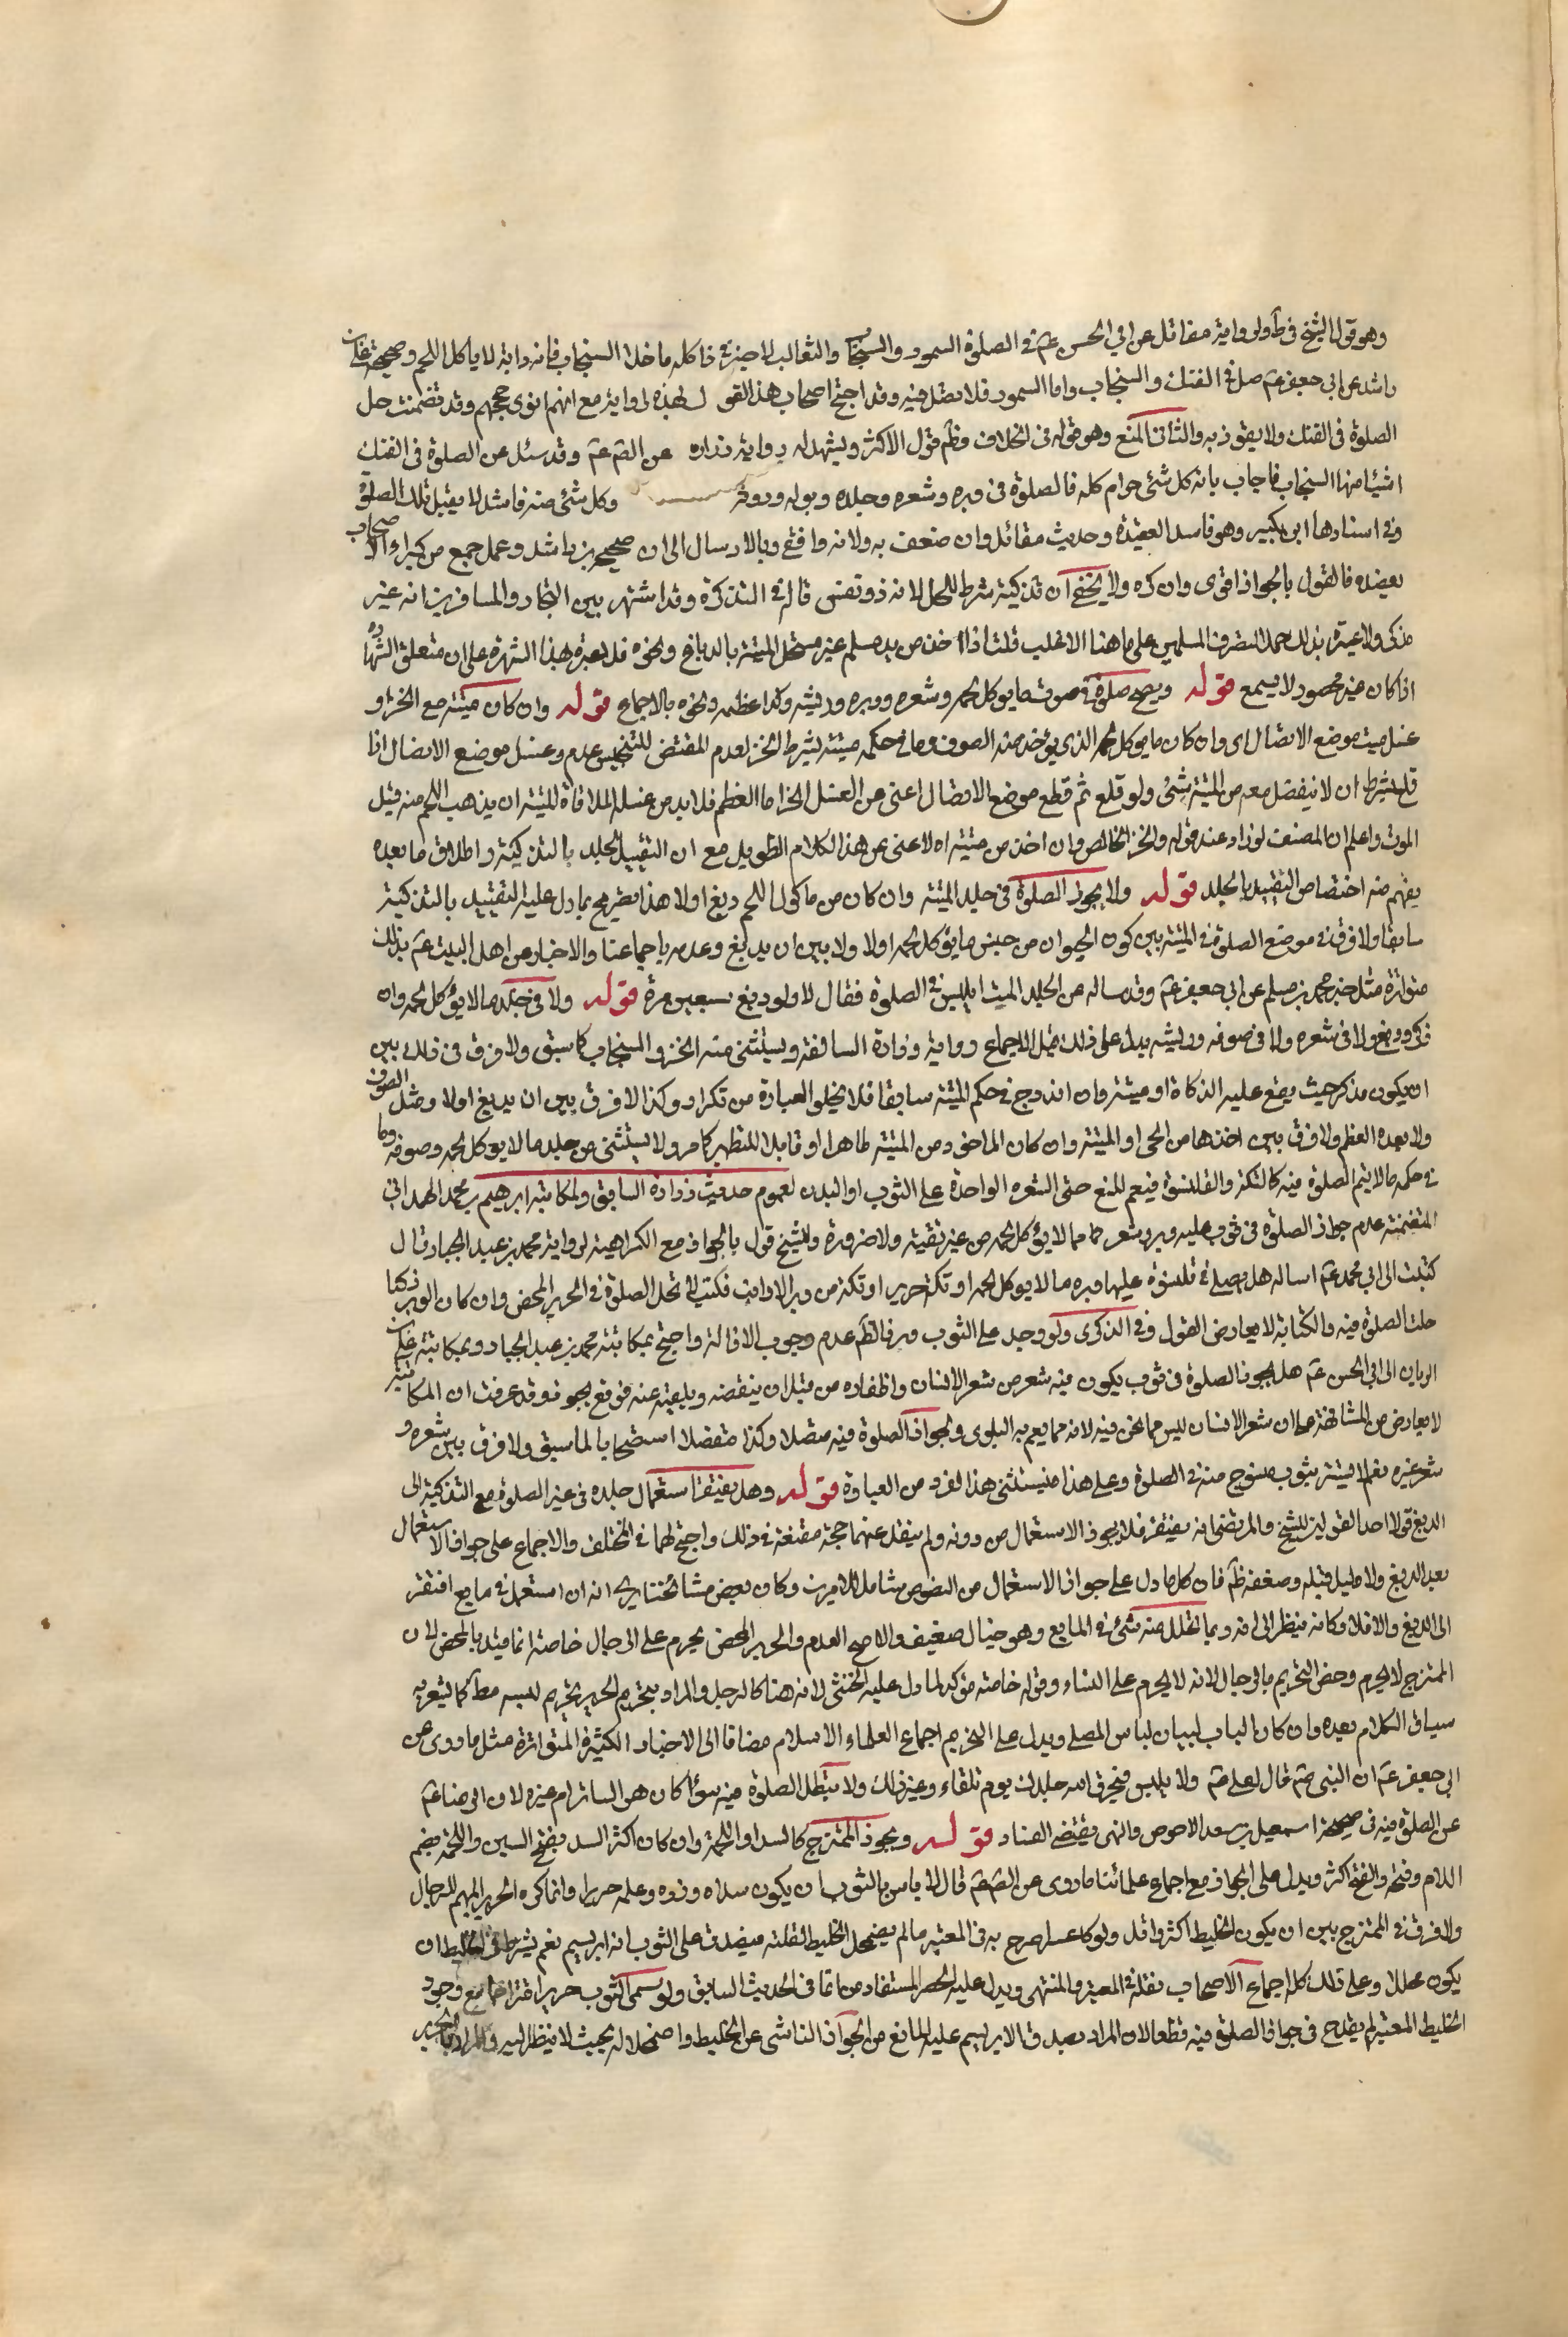 وهو قول الشيخ في ط اولى رواية مقاتل عن ابي الحسن عم في الصلوة السمور والسنجاب والثعالب لا خير في ذا كله ما خلا السنجاب فانه دابة لا ياكل اللحم وصحيحة على بن
راشد عن ابي جعفر عم صل في الفنك والسنجاب واما السمور فلا تصل فيه وقد احتج اصحاب هذا القول لهذه الرواية مع انهم اقوى حججهم وقد تضمنت حل
الصلوة في الفنك ولا يقولون به والثاني المنع وهو قوله في الخلاف وظم قول الاكثر ويشهد له رواية زراره عن الصم عم وقد سئل عن الصلوة في الفنك
اشيا منها السنجاب فاجاب بانه كل شئ حرام كله فالصلوة في وبره وشعره وجلده وبوله وروثه وكل شئ منه فاسد لا يقبل تلك الصلوة
وفي اسنادها ابن بكير وهو فاسد العقيدة وحديث مقاتل وان ضعف به ولانه واقفي وبالارسال الى ان صحيح بن راشد وعمل جمع من كبراء الاصحاب
يعضده فالقول بالجواز اقوى وان كره ولا يخفى ان تذكيته شرط للحل لانه ذو نفس قاله في التذكرة وقد اشتهر بين التجار والمسافرين انه غير
مذكى ولا عبرة بذلك حملا لتصرف المسلمين على ما هنا الاغلب قلت اذا اخذ من يد مسلم غير مستحل الميتة بالدباغ ونحوه فلا عبرة بهذا الشهرة على ان متعلق الشهادة
اذا كان غير محصور لا يسمع قوله ويصح صلوة في صوف ما يوكل لحمه وشعره ووبره وريشه وكذا عظمه ونحوه بالاجماع قوله وان كان ميتة مع الجز او
غسل ميت موضع الاتصال اى وان كان ما يوكل لحمه الذي يؤخذ منه الصوف وما في حكمه ميتة بشرط الجز لعدم المقتضي للتنجيس عدم وغسل موضع الاتصال اذا
قلع بشرط ان لا ينفصل معه من الميتة شئ ولو قلع ثم قطع موضع الاتصال اغنى عن الغسل الجز اما العظم فلا بد من غسله لملاقاة الميتة ان يذهب اللحم منه قبل
الموت واعلم ان المصنف لو زاد عند قوله والخز الخالص وان اخذ من ميتة اه لاغنى عن هذا الكلام الطويل مع ان التقييد للجلد بالتذكية واطلاق ما بعده
يفهم منه اختصاص التقييد بالجلد قوله ولا يجوز الصلوة في جلد الميتة وان كان من ماكول اللحم دبغ اولا هذا تصريح بما دل عليه التقييد بالتذكية
سابقا ولا فرق في موضع الصلوة في الميتة بين كون الحيوان من جنس ما يؤكل لحمه اولا ولا بين ان يدبغ وعدمه باجماعنا والاخبار عن اهل البيت عم بذلك
متواترة مثل خبر محمد بن مسلم عن ابي جعفر عم وقد ساله عن الجلد الميت ايلبس في الصلوة فقال لا ولو دبغ سبعين مرة قوله ولا في جلد ما لا يؤكل لحمه وان
ذكى ودبغ ولا في شعره ولا في صوفه وريشه يدل على ذلك مثل الاجماع رواية زرارة السالفة ويستثنى منه الخز والسنجاب كما سبق ولا فرق في ذلك بين
ان يكون مذكى حيث يقع عليه الذكاة او ميتة وان اندرج في حكم الميتة سابقا فلا يخلو العبارة من تكرار وكذا لا فرق بين ان يدبغ اولا ومثل الصوف
ولا بعده العظم ولا فرق بين اخذها من الحى او الميتة وان كان الماخوذ من الميتة طاهرا او قابلا للتطهير كما مر ولا يستثنى من جلد ما لا يوكل لحمه وصوفه وما
في حكمه ما لا يتم الصلوة فيه كالتكة والقلنسوة فيعم المنع حتى الشعره الواحدة على الثوب او البدن لعموم حديث زرارة السابق ولمكاتبة ابرهيم بن محمد الهمداني
المتضمنة عدم جواز الصلوة في ثوب عليه وبر وشعر مما لا يؤكل لحمه من غير تقية ولا ضرورة وللشيخ قول بالجواز مع الكراهية لرواية محمد بن عبد الجبار قال
كتبت الى ابي محمد عم اساله هل يصلى في قلنسوة عليها وبر ما لا يوكل لحمه او تكة حرير او تكة من وبر الارانب فكتب لا تحل الصلوة في الحرير المحض وان كان الوبر ذكيا
حلت الصلوة فيه والكتابة لا يعارض القول وفي الذكرى ولو وجد على الثوب وبر فالظم عدم وجوب الازالة واحتج بمكاتبة محمد بن عبد الجبار وبمكاتبة على بن
الريان الى ابي الحسن عم هل يجوز الصلوة في ثوب يكون فيه شعر من شعر الانسان واظفاره من قبل ان ينفضه ويلقيه عنه فوقع يجوز وقد عرفت ان المكاتبة
لا يعارض من المشافهة على ان شعر الانسان ليس مما نحن فيه لانه مما يعم به البلوى ولجواز الصلوة فيه متصلا وكذا منفصلا استصحابا لما سبق ولا فرق بين شعره و
شعر غيره نعم لا يستتر بثوب منسوج منه في الصلوة وعلى هذا فيستثنى هذا الفرد من العبارة قوله وهل يفتقر استعمال جلده في غير الصلوة مع التذكية الى
الدبغ قولا احد القولين للشيخ والمرتضى انه يفتقر فلا يجوز الاستعمال من دونه ولم ينقل عنهما حجة مقنعة في ذلك واحتج لهما في المختلف والاجماع على جواز الاستعمال
بعد الدبغ ولا دليل قبله وضعفه ظم فان كل ما دل على جواز الاستعمال من النصوص شامل للامرين وكان بعض مشائخنا يرى انه ان استعمل في مايع افتقر
الى الدبغ والا فلا وكانه ينظر الى انه ربما تحلل منه شئ في المايع وهو خيال ضعيف والاصح العدم والحرير المحض يحرم على الرجال خاصة انما قيد بالمحض لان
الممتزج لا يحرم وخص التحريم بالرجال لانه لا يحرم على النساء وقوله خاصة مؤكد لما دل عليه الخنثى لانه هنا كالرجل والمراد بتحريم الحرير تحريم لبسه مط كما يشعر به
سياق الكلام بعده وان كان الباب لبيان لباس المصلى ويدل على التحريم اجماع العلماء الاسلام مضافا الى الاخبار الكثيرة المتواترة مثل ما روى عن
ابي جعفر عم ان النبي صم قال لعلي عم ولا يلبس فيحرق الله جلدك يوم تلقاه وغير ذلك ولا تبطل الصلوة فيه سواء كان هو الساتر ام غيره لان الرضا عم
عن الصلوة فيه في صحيحة اسمعيل بن سعد الاحوص والنهى يقتضى الفساد قوله ويجوز الممتزج كالسدا او اللحمة وان كان اكثر السد بفتح السين واللحمة بضم
اللام وفتحه والفتح اكثر ويدل على الجواز مع اجماع علمائنا ما روى عن الصم عم قال لا باس بالثوب ان يكون سداه وزره وعلمه حريرا وانما كره الحرير المبهم للرجال
ولا فرق في الممتزج بين ان يكون الخليط اكثر او اقل ولو كان عشرا صرح به في المعتبر ما لم يضمحل الخليط لقلته فيصدق على الثوب انه ابريسم نعم يشترط في الخليط ان
يكون محللا وعلى ذلك كله اجماع الاصحاب نقله في المعتبر والمنتهى ويدل عليه الحصر المستفاد من انما في الحديث السابق ولو سمى الثوب حريرا اغترارا مع وجود
الخليط المعتبر لم يقدح في جواز الصلوة فيه قطعا لان المراد بصدق الابريسم عليه المانع من الجواز الناشى عن الخليط واضمحلاله بحيث لا ينظر اليه والمراد بالحرير